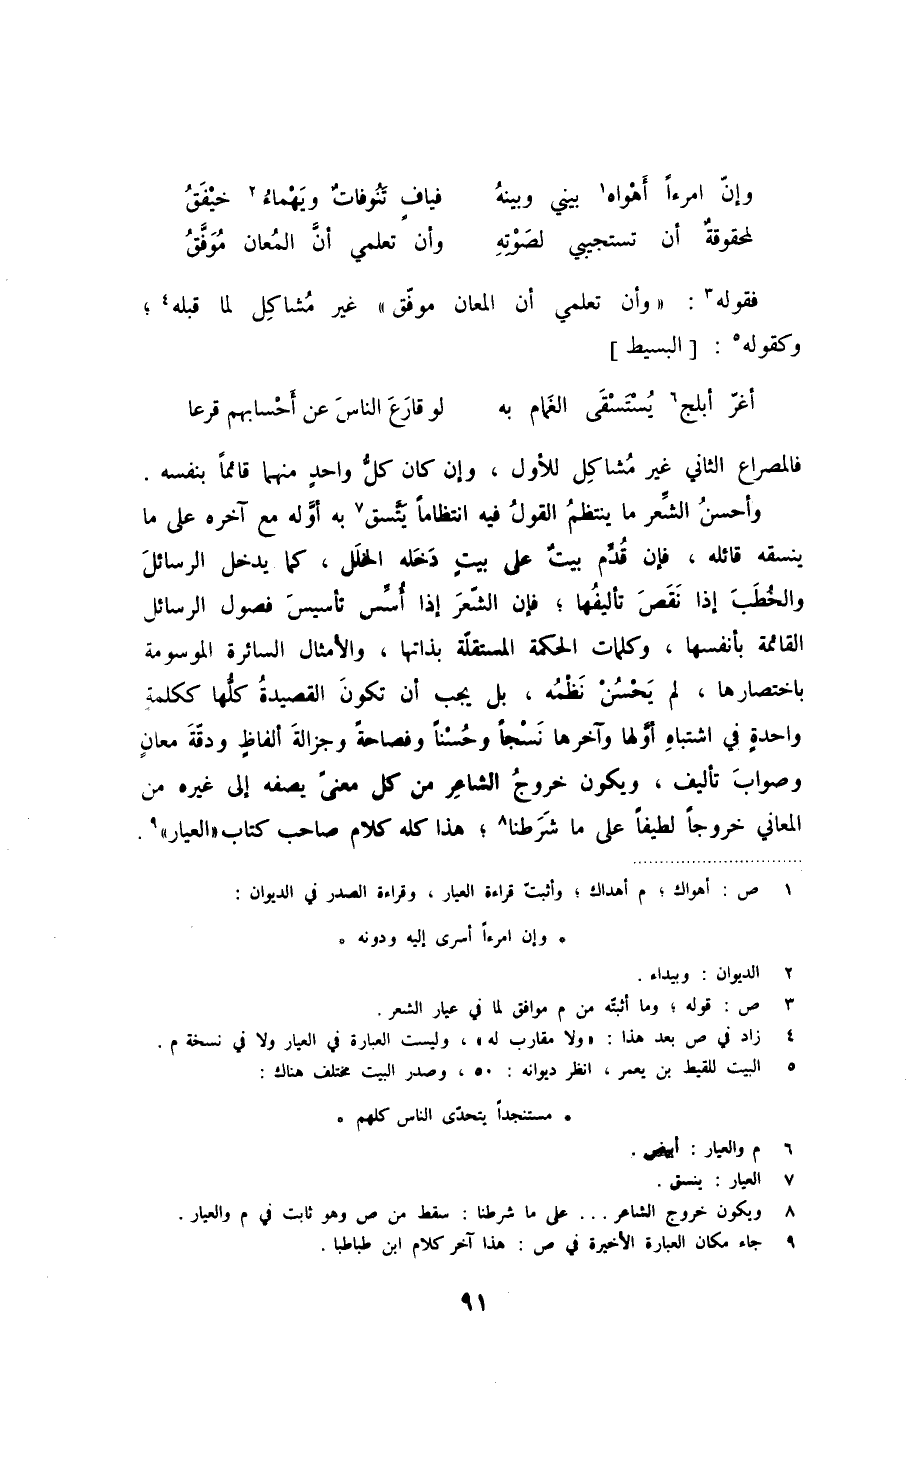 وإنّ امرءاً أَهْواه١ بيني وبينهُ فيافٍ تَنُوفاتٌ ويَهْماءُ٢ خيْفَقُ
لمحقوقةٌ أن تستجيبي لصَوْتِهِ وأن تعلمي أنَّ المُعان مُوَفَّقُ
فقوله٣ : « وأن تعلمي أن المعان موفّق » غير مُشاكِل لما قبله٤ ؛
وكقوله٥ : [ البسيط ]
أغرّ أبلج٦ يُسْتَسْقَى الغَمام به لو قارَعَ الناسَ عن أَحْسابهم قرعا
فالمصراع الثاني غير مُشاكِل للأول ، وإن كان كلُّ واحدٍ منهما قائماً بنفسه .
وأحسنُ الشِّعر ما ينتظمُ القولُ فيه انتظاماً يَتَّسق٧ به أوَّله مع آخره على ما
ينسقه قائله ، فإن قُدِّم بيتٌ على بيتٍ دَخَله الخلَل ، كما يدخل الرسائلَ
والخُطَبَ إذا نَقَصَ تأليفُها ؛ فإن الشّعرَ إذا أُسِّس تأسيسَ فصول الرسائل
القائمة بأنفسها ، وكلمات الحكمة المستقلّة بذاتها ، والأمثال السائرة الموسومة
باختصارها ، لم يَحْسُنْ نَظْمُه ، بل يجب أن تكونَ القصيدةُ كلُّها ككلمةٍ
واحدةٍ في اشتباهِ أوَّلها وآخرها نَسْجاً وحُسْناً وفصاحةً وجزالةَ ألفاظٍ ودقّةَ معانٍ
وصوابَ تأليف ، ويكون خروجُ الشاعرِ من كل معنىً يصفه إلى غيره من
المعاني خروجاً لطيفاً على ما شَرَطنا٨ ؛ هذا كله كلام صاحب كتاب «العيار»٩ .
١ ص : أهواك ؛ م أهداك ؛ وأثبتّ قراءة العيار ، وقراءة الصدر في الديوان :
• وإن امرءاً أسرى إليه ودونه •
٢ الديوان : وبيداء .
٣ ص : قوله ؛ وما أثبتّه من م موافق لما في عيار الشعر .
٤ زاد في ص بعد هذا : «ولا مقارب له» ، وليست العبارة في العيار ولا في نسخة م .
٥ البيت للقيط بن يعمر ، انظر ديوانه : ٥٠ ، وصدر البيت مختلف هناك :
• مستنجداً يتحدّى الناس كلهم •
٦ م والعيار : أبيض .
٧ العيار : ينسق .
٨ ويكون خروج الشاعر ... على ما شرطنا : سقط من ص وهو ثابت في م والعيار .
٩ جاء مكان العبارة الأخيرة في ص : هذا آخر كلام ابن طباطبا .
٩١